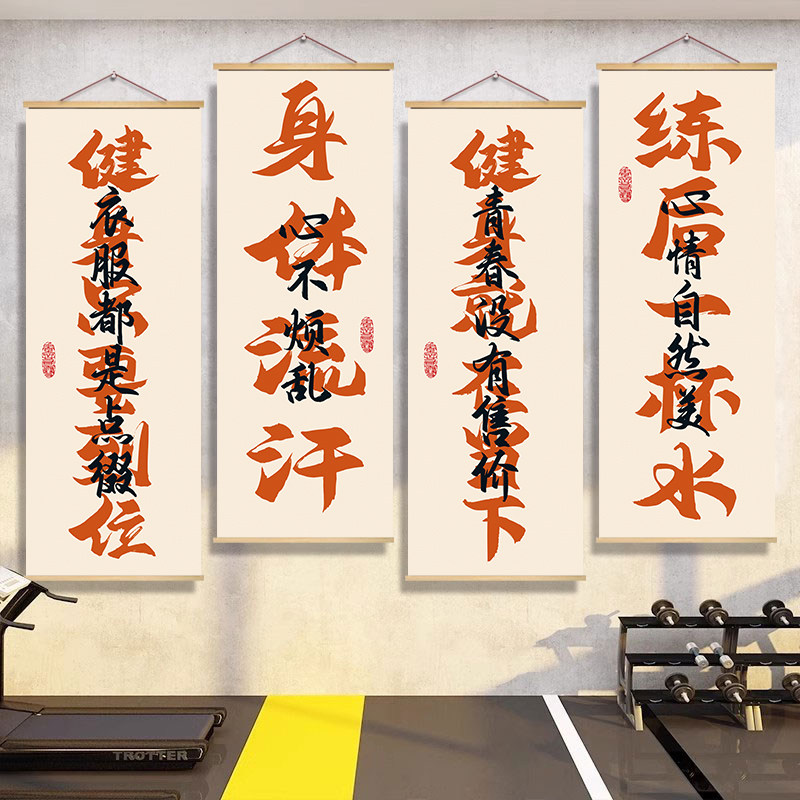 健身只要到位
衣服都是点缀
身体流汗
心不烦乱
健身就在当下
青春没有售价
练后一杯水
心情自然美
TROTTER